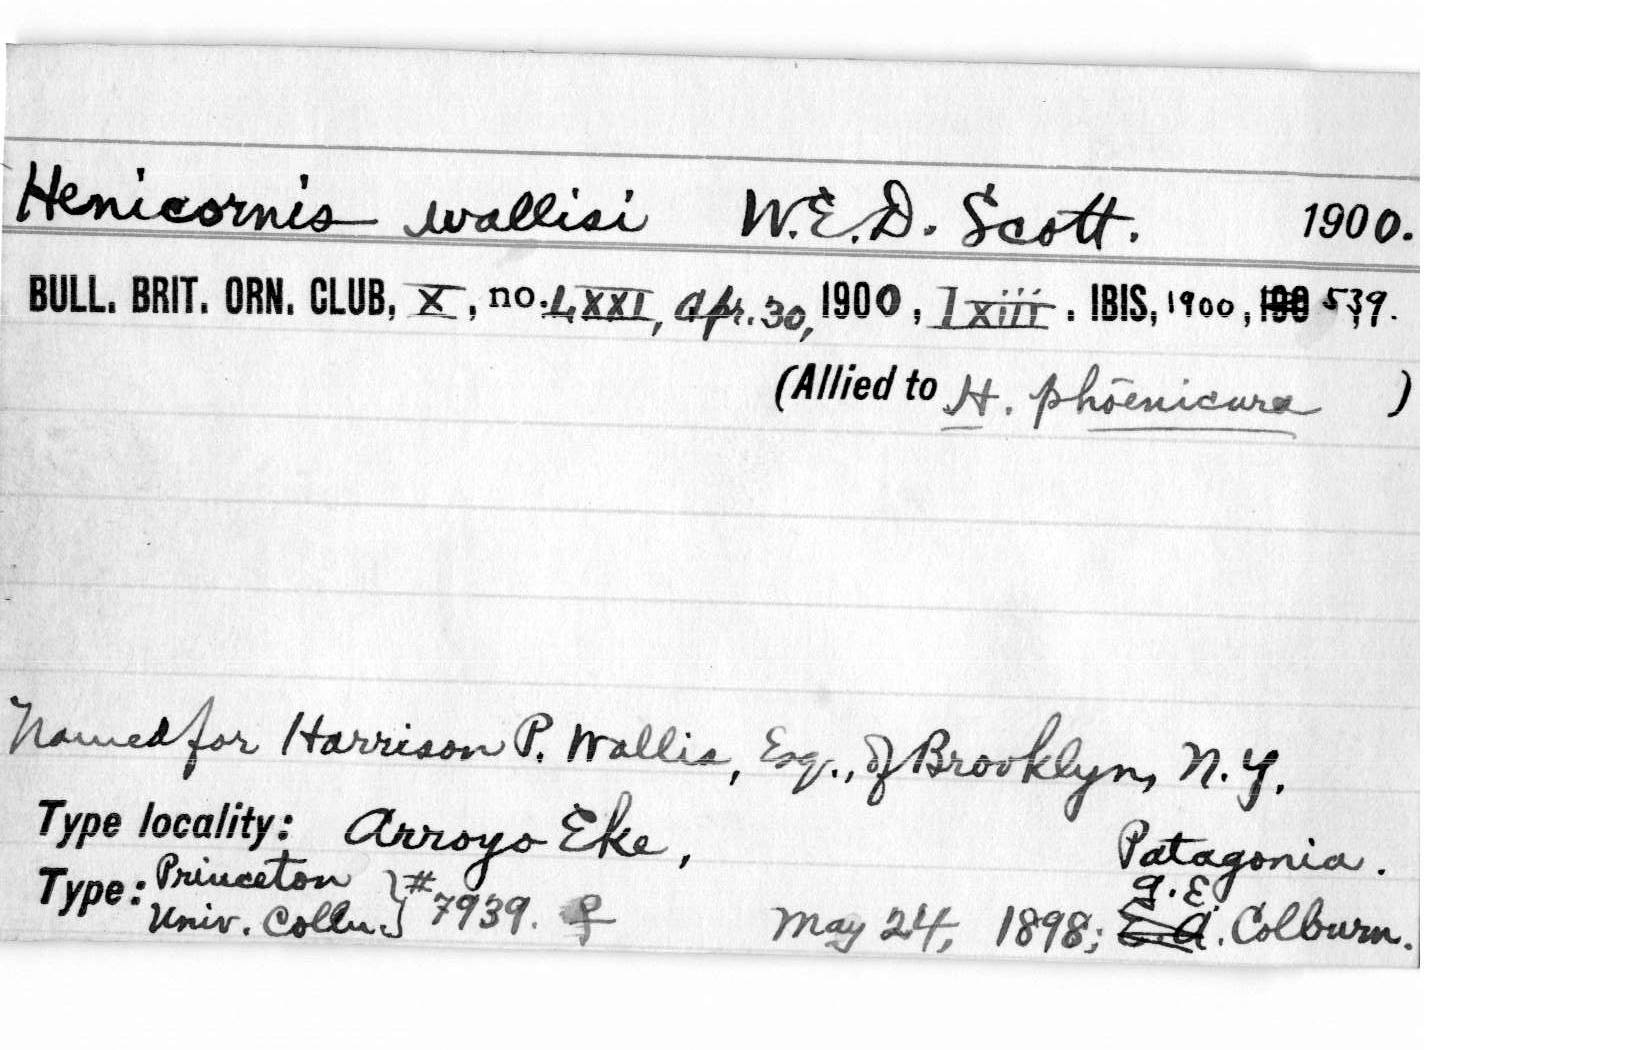 Henicornis wallisi W.E.D. Scott. 1900.
BULL. BRIT. ORN. CLUB, X, no. LXXI, Apr. 30, 1900, lxiii. IBIS, 1900, 539.
(Allied to H. phœnicura )
Named for Harrison P. Wallis, Esq., of Brooklyn, N.Y.
Type locality: Arroyo Eke, Patagonia.
Type: Princeton Univ. Colln. } # 7939. ♀ May 24, 1898; E.A. Colburn.